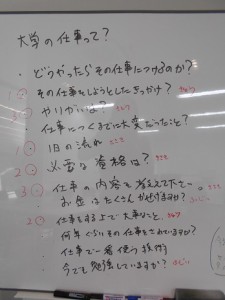 大学の仕事って?
・どうやったらその仕事につけるのか?
1 ・その仕事をしようとしたきっかけ?
3 ・やりがいは?
仕事につくまでに大変だったこと?
1 ・1日の流れ
2 ・必要な資格は?
3 ・仕事の内容を教えて下さい。
お金はたくさんかせげますか?
2 ・仕事をする上で大事なこと。
何年ぐらいその仕事をされていますか?
仕事で一番使う技術
今でも勉強していますか?